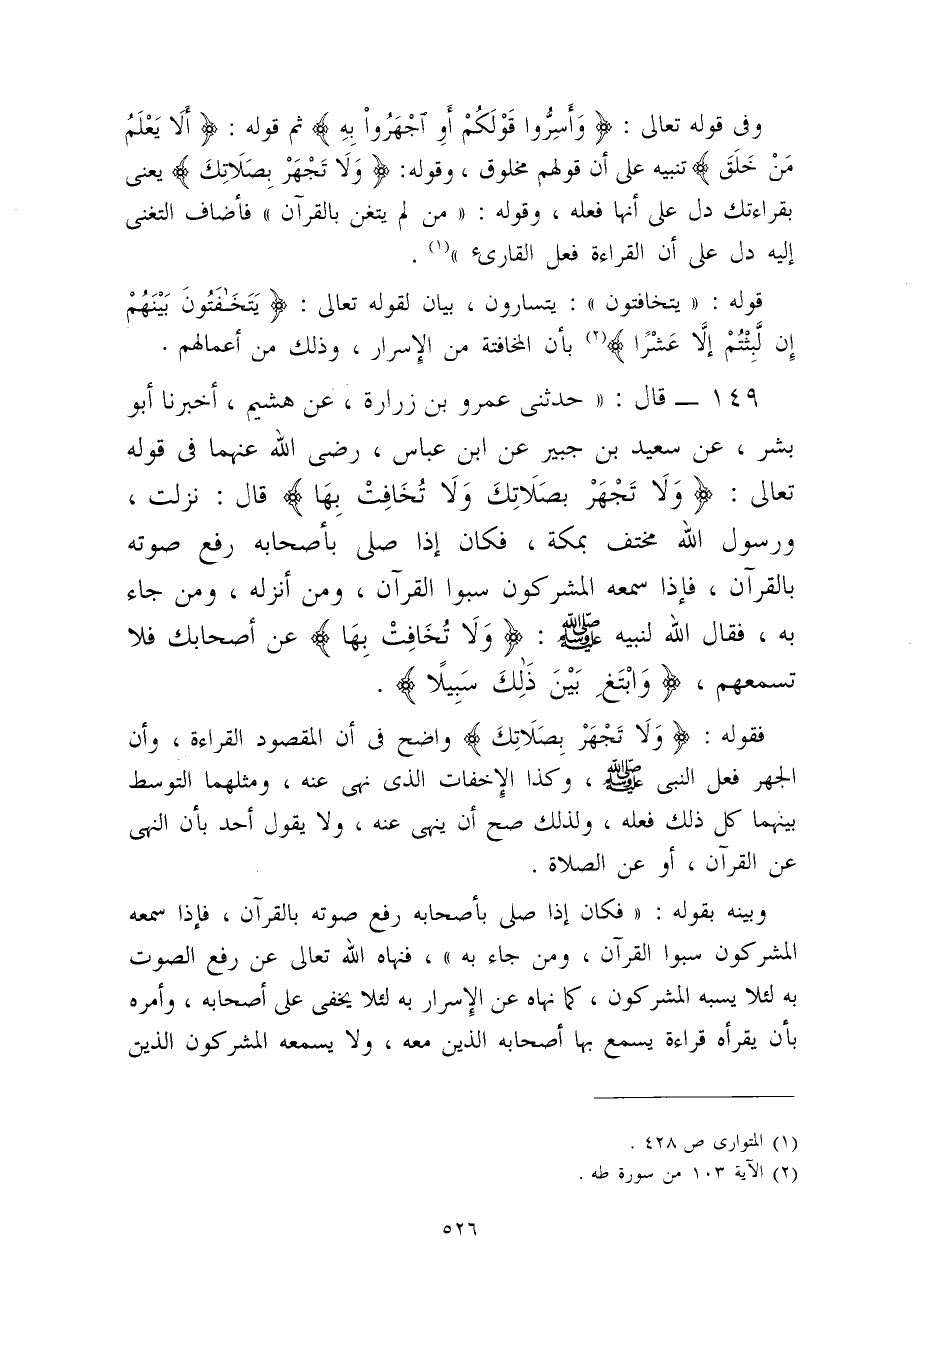 وفى قوله تعالى : ﴿ وَأَسِرُّوا قَوْلَكُمْ أَوِ ٱجْهَرُواْ بِهِ ﴾ ثم قوله : ﴿ أَلَا يَعْلَمُ
مَنْ خَلَقَ ﴾ تنبيه على أن قولهم مخلوق ، وقوله: ﴿ وَلَا تَجْهَرْ بِصَلَاتِكَ ﴾ يعنى
بقراءتك دل على أنها فعله ، وقوله : « من لم يتغن بالقرآن » فأضاف التغنى
إليه دل على أن القراءة فعل القارىء »(١) .
قوله : « يتخافتون » : يتسارون ، بيان لقوله تعالى : ﴿ يَتَخَـٰفَتُونَ بَيْنَهُمْ
إِن لَّبِثْتُمْ إلَّا عَشْرًا ﴾(٢) بأن المخافتة من الإسرار ، وذلك من أعمالهم .
١٤٩ ــ قال : « حدثنى عمرو بن زرارة ، عن هشيم ، أخبرنا أبو
بشر ، عن سعيد بن جبير عن ابن عباس ، رضى الله عنهما فى قوله
تعالى : ﴿ وَلَا تَجْهَرْ بصَلَاتِكَ وَلَا تُخَافِتْ بِهَا ﴾ قال : نزلت ،
ورسول الله مختف بمكة ، فكان إذا صلى بأصحابه رفع صوته
بالقرآن ، فإذا سمعه المشركون سبوا القرآن ، ومن أنزله ، ومن جاء
به ، فقال الله لنبيه ﷺ : ﴿ وَلَا تُخَافِتْ بِهَا ﴾ عن أصحابك فلا
تسمعهم ، ﴿ وَابْتَغِ بَيْنَ ذَٰلِكَ سَبِيلًا ﴾ .
فقوله : ﴿ وَلَا تَجْهَرْ بِصَلَاتِكَ ﴾ واضح فى أن المقصود القراءة ، وأن
الجهر فعل النبى ﷺ ، وكذا الإخفات الذى نهى عنه ، ومثلهما التوسط
بينهما كل ذلك فعله ، ولذلك صح أن ينهى عنه ، ولا يقول أحد بأن النهى
عن القرآن ، أو عن الصلاة .
وبينه بقوله : « فكان إذا صلى بأصحابه رفع صوته بالقرآن ، فإذا سمعه
المشركون سبوا القرآن ، ومن جاء به » ، فنهاه الله تعالى عن رفع الصوت
به لئلا يسبه المشركون ، كما نهاه عن الإسرار به لئلا يخفى على أصحابه ، وأمره
بأن يقرأه قراءة يسمع بها أصحابه الذين معه ، ولا يسمعه المشركون الذين
(١) المتوارى ص ٤٢٨ .
(٢) الآية ١٠٣ من سورة طه .
٥٢٦